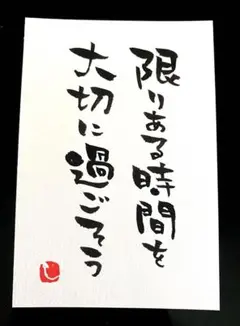 限りある時間を
大切に過ごそう